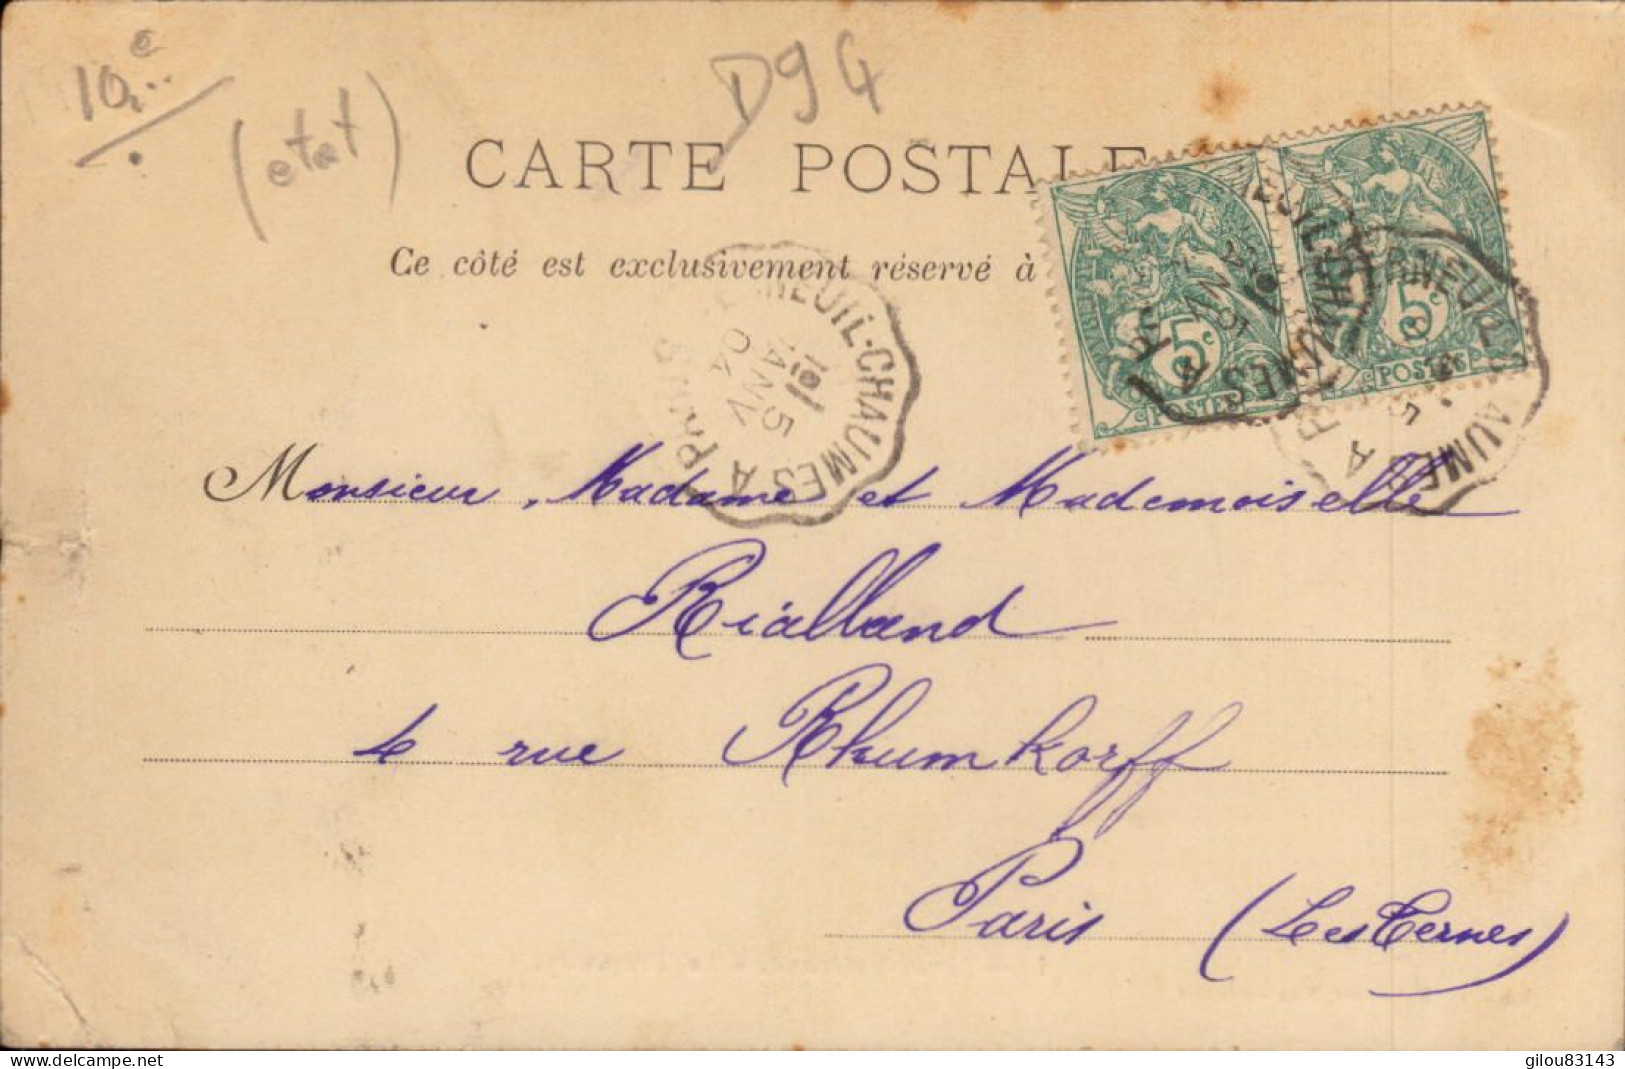 10,.. e
(etat)
D94
CARTE POSTALE
Ce côté est exclusivement réservé à
5c
POSTES
5c
POSTES
VERNEUIL-CHAUMES A PARIS
5
JANV
04
Monsieur, Madame et Mademoiselle
Rialland
4 rue Rhumkorff
Paris (Les Ternes)
www.delcampe.net
gilou83143